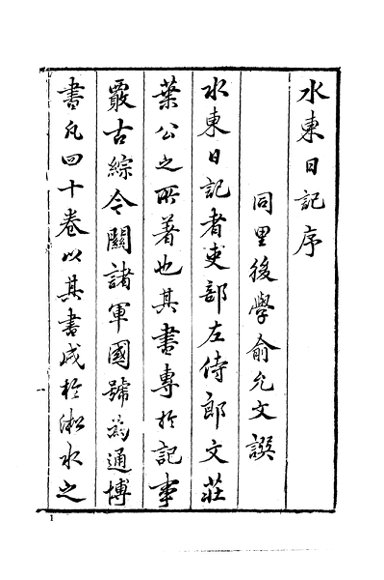 水東日記序
同里後學俞允文譔
水東日記者吏部左侍郎文莊
葉公之所著也其書專於記事
覈古綜今關諸軍國號為通博
書凡四十卷以其書成於淞水之